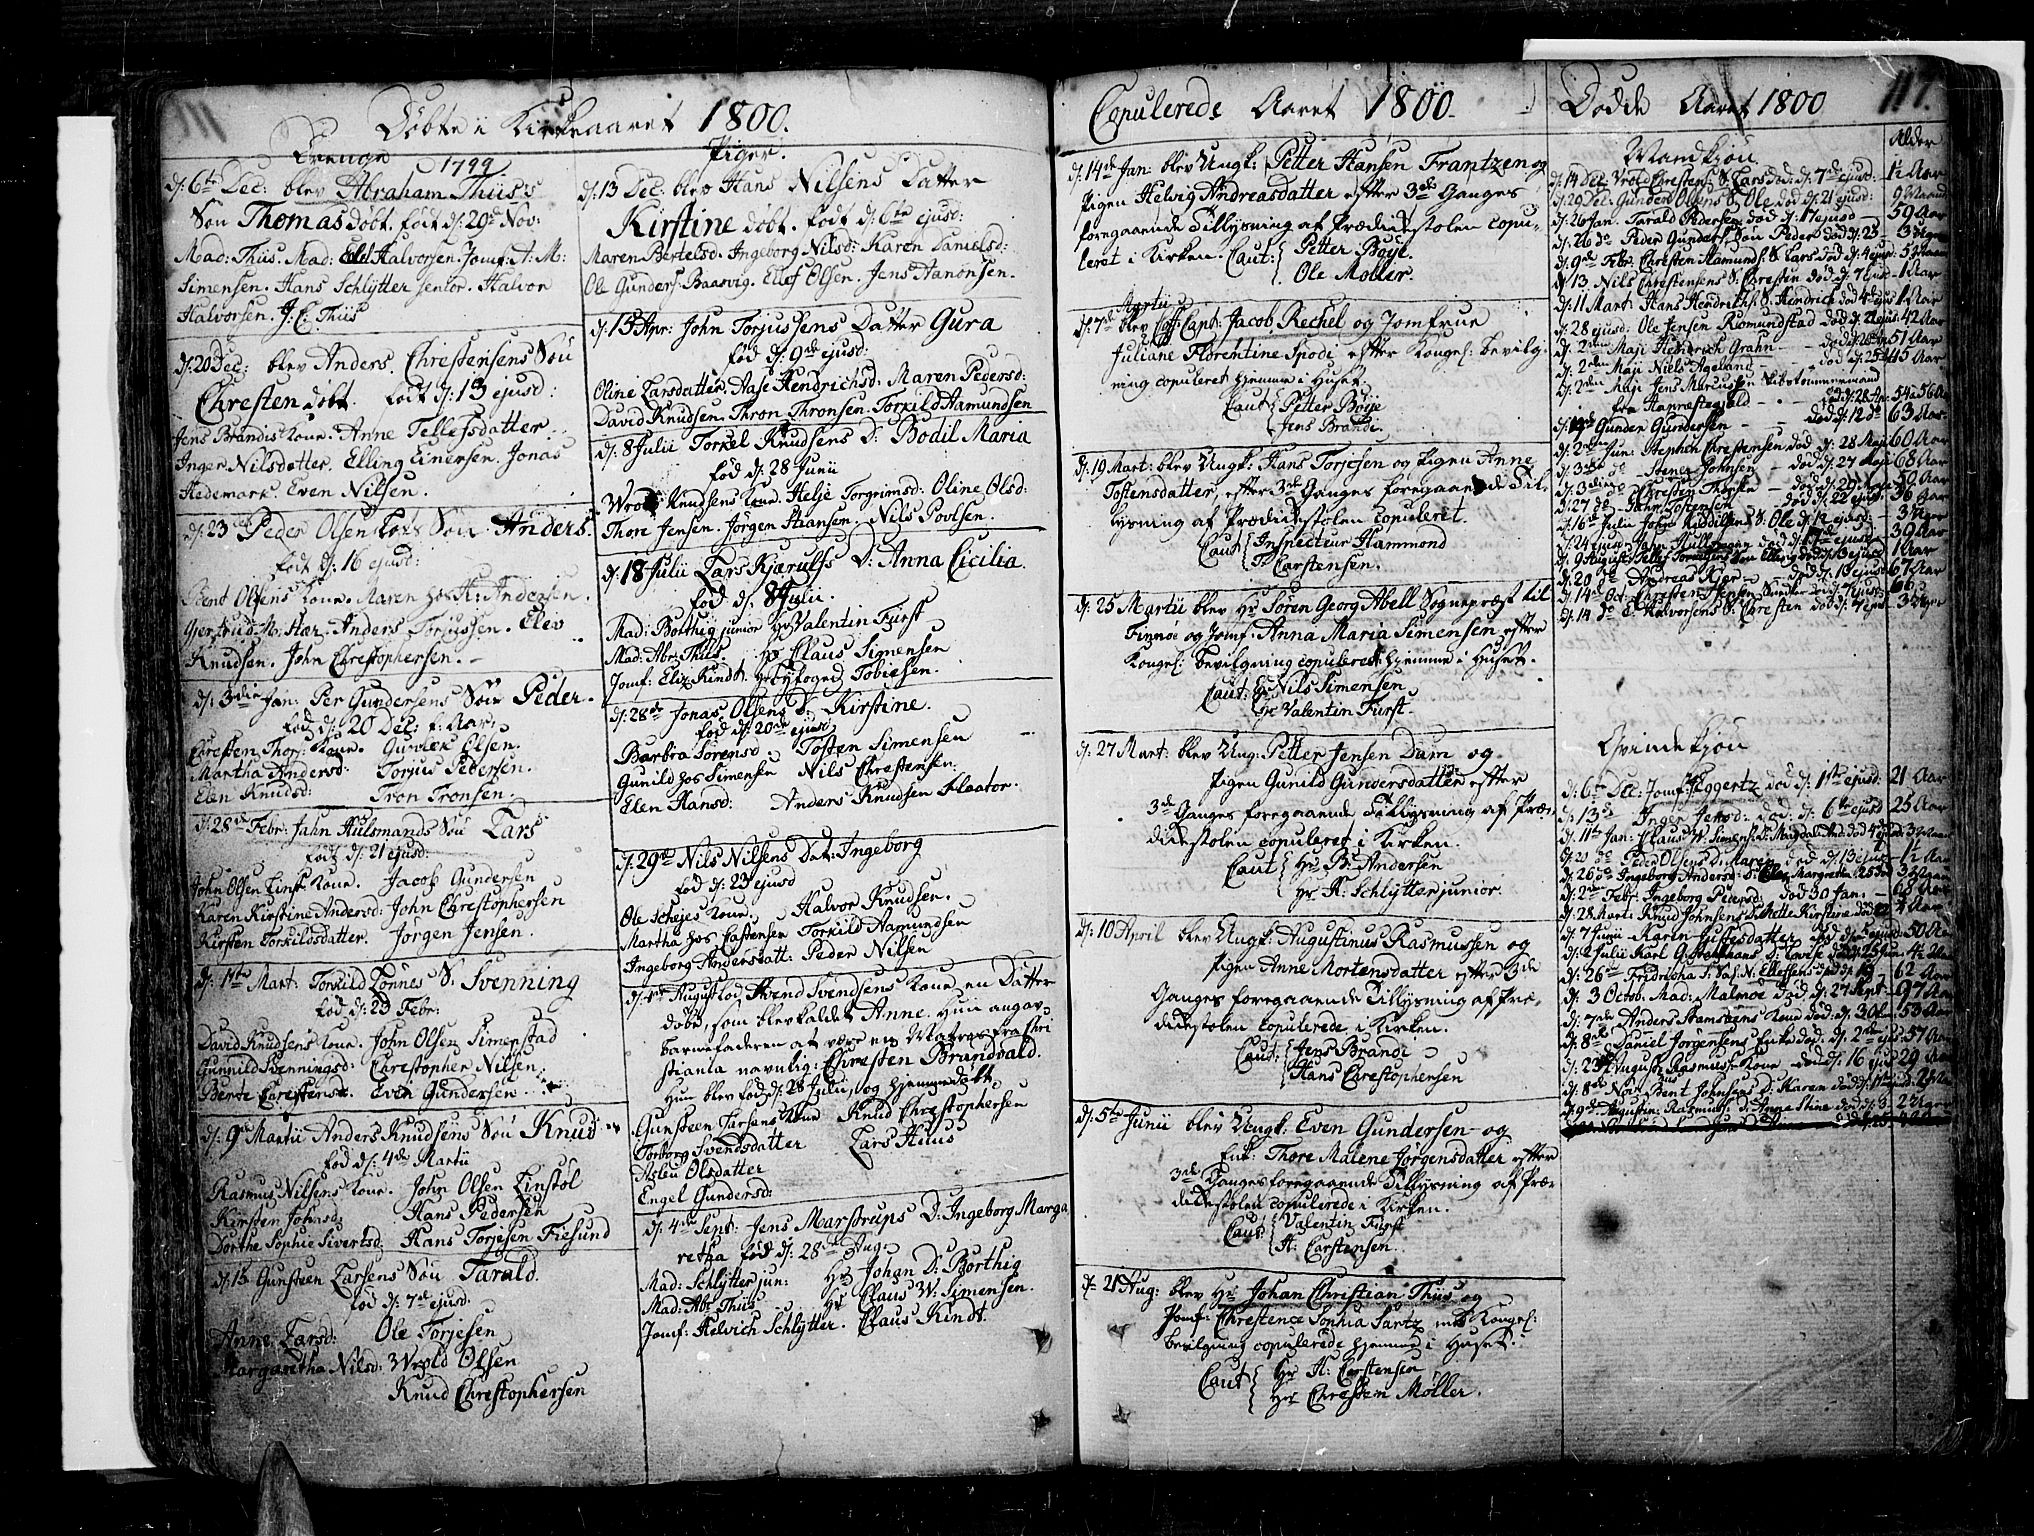 Döbte i Kirkeaaret 1800.
Drenge
1799
d: 6te Dec: blev Abraham Thüis's
Søn Thomas döbt. född d: 29de Nov:
Mad: Thüs. Mad: Halvorsen. Jomf: A: M:
Simensen. Hans Schlÿtter senior. Halvor
Halvorsen. J: C: Thüs
d: 20 Dec: blev Anders Chrestensens Søn
Chresten döbt. född d: 13 ejusd:
Jens Brandis Kone. Anne Tellefsdatter.
Inger Nilsdatter. Elling Einersen. Jonas
Hedemark. Even Nilsen.
d: 23 Peder Olsen Søn Anders.
född d: 16 ejusd:
Bent Olsens Kone. Maren hos H: Andersen.
Gjertrud M: Hær. Anders Torjussen. Elev
Knudsen. John Chrestophersen.
d: 3die Jan: Per Gundersens Søn Peder.
föd d: 20 Dec: f: Aar.
Chresten Thors: Kone. Gunder Olsen.
Martha Andersd: Torjus Pedersen.
Elen Knudsd: Tron Tronsen.
d: 28de Febr: Jahn Hulsmands Søn Lars
född d: 21 ejusd:
John Olsen Kone. Jacob Gundersen
Karen Kirstine Andersd: John Chrestophersen
Kirsten Torkildsdatter. Jorgen Jensen.
d: 1ste Mart: Torkild Lønnes S: Svenning
föd d: 23 Febr:
David Knudsens Kone. John Olsen Simonstad
Gunnild Svenningsd: Chrestopher Nilsen.
Berte Chrestensd: Even Gundersen
d: 9de Martii Anders Knudsens Søn Knud
föd d: 4de Martii
Rasmus Nilsens Kone. John Olsen Linstøl
Kirsten Johnsd: Hans Pedersen
Dorthe Sophie Sivertsd: Hans Torjesen Fiesund
d: 15 Gunsteen Larsens Søn Tarald.
föd d: 7de ejusd:
Anne Larsd: Ole Torjesen
Margaretha Nilsd: Wrold Olsen
Knud Chrestophersen
Piger.
d: 13 Dec: blev Hans Nilsens Datter
Kirstine döbt. född d: 6te ejusd:
Maren Bertelsd: Ingeborg Nilsd: Karen Danielsd:
Ole Gunders: Baasvig. Ellef Olsen. Jens Aanonsen.
d: 13 Apr: John Torjussens Datter Gura
föd d: 9de ejusd:
Oline Larsdatter. Aase Hendrichsd: Maren Pedersd:
David Knudsen. Thron Thronsen. Torkild Aamundsen
d: 8 Julii Torkel Knudsens D: Bodil Maria
föd d: 28 Junii
Wrold Knudsens Kone. Helje Torgrimsd: Oline Olsd:
Thore Jensen. Jörgen Hansen. Nils Povlsen.
d: 18 Julii Lars Kjærulfs D: Anna Cicilia.
föd d: 8 Julii.
Mad: Borthig junior Hr Valentin Fürst
Mad: Abr: Thüs. Hr Claus Simensen
Jomf: Eliz: Kindt. Hr Byfoged Tobiesen.
d: 28de Jonas Olsens D: Kirstine.
föd d: 20de ejusd
Barbra Sörensd: Tosten Simensen
Gunild hos Simensen Nils Chrestensen.
Elen Hansd: Anders Knudsen Flaator.
d: 29de Nils Nilsens Dat: Ingeborg
föd d: 23 ejusd
Ole Schejes Kone. Halvor Knudsen.
Martha hos Carstensen Torkild Aamundsen
Ingeborg Andersdatt: Peder Nilsen
d: August lod Svend Svendsens Kone en Datter
döbe, som blev kaldet Anne. Hun angav
barnefaderen at være en Matros fra Chri
stiania navnlig: Chresten Brandvald.
Hun blev föd d: 28 Julii, og hjemmedöbt.
Gunsteen Larsens Kone Knud Chrestophersen
Torborg Svendsdatter Lars Heius
Aslau Olsdatter
Engel Gundersd:
d: 4de Sept: Jens Marstrups D: Ingeborg Marga
retha föd d: 28de Aug:
Mad: Schlÿtter jun: Hr Johan D: Borthig
Mad: Abr: Thüs. Hr Claus W: Simensen.
Jomf: Helvich Schlÿtter. Claus Kindt.
Copulerede Aaret 1800.
d: 14de Jan: blev Ungk: Petter Hansen Frantzen og
Pigen Helvig Andreasdatter efter 3de Ganges
foregaaende Tillysning af Prædikestolen copu-
leret i Kirken. Caut: { Petter Böÿe.
Ole Möller.
d: 7de Martii blev Capt: Jacob Rechel og Jomfrue
Juliane Florentine Spode efter Kongel: bevilg
ning copuleret hjemme i Huset.
Caut { Petter Böÿe
Jens Brandi.
d: 19 Mart: blev Ungk: Hans Torjesen og Pigen Anne
Tostensdatter, efter 3de Ganges foregaaende Til-
lysning af Prædikestolen copuleret.
Caut { Inspecteur Hammond
Carstensen.
d: 25 Martii blev Hr Sören Georg Abell Sognepræst til
Finnöe og Jomf: Anna Maria Simensen efter
Kongel: bevilgning copuleret hjemme i Huset.
Caut: Hr Nils Simensen.
Hr Valentin Fürst.
d: 27 Mart: blev Ung: Petter Jensen Dam og
Pigen Gunild Gundersdatter efter
3de Ganges foregaaende Tillysning af Præ-
dikestolen copuleret i Kirken.
Caut { Hr Andersen
Hr H: Schlÿtter junior.
d: 10 April blev Ungk: Augustinus Rasmussen og
Pigen Anne Mortensdatter efter 3de
Ganges foregaaende Tillysning af Præ-
dikestolen copulerede i Kirken.
Caut: { Jens Brandi
Hans Chrestophersen
d: 5te Junii blev Ungk: Even Gundersen og
Enk: Thore Malene Jörgensdatter efter
3de Ganges foregaaende Tillysning af Præ-
dikestolen copulerede i Kirken.
Caut { Valentin Fürst
H: Carstensen.
d: 21 Aug: blev Hr Johan Christian Thüs og
Jomf: Chrestence Sophia Sartz med Kongel:
bevilgning copulerede hjemme i Huset.
Caut { Hr H: Carstensen
Hr Chresten Möller.
Döde Aaret 1800
117.
Mandkjön
Alder
d: 14 Dec: Vrold Chrestens: S: Lars död d: 7de ejusd: 1½ Aar
d: 29 Dec: Gunder Olsens S: Ole död d: 21 ejusd: 9 Maaned
d: 26 Jan: Tarald Pedersen död d: 17 ejusd 59 Aar
d: 26 do Peder Gunders: Søn Peder död d: 23 3 Uger
d: 9de Febr: Chresten Hamunds: S: Lars död d: 4 ejusd:
d: 13 Nils Chrestensens S: Chresten död d: 7 1 Aar
d: 11 Mart: Hans Hendrichs: S: Hendrich död 4de ejus 1 Aar
d: 28 ejusd: Ole Jensen Riomundstad död d: 21 ejus: 42 Aar
d: 2den Maji Hendrich Grahn 51 Aar
d: 2den Maji Niels Ageland död d: 25 45 Aar
d: 2den Maji Jens Marcussen Skibstømmermand
fra Haaresteigield död d: 28 Apr: 54 a 56 Aar
Gunder Gundersen död d: 12 do 63 Aar
d: 2den Jun: Stephen Chrestensen död d: 28 Maji 60 Aar
d: 3die do Stener Johnsen död d: 27 Maji 68 Aar
d: 3die do Chresten Thorse död d: 29 59 Aar
d: 27 do John Tostensen död d: 22 ejusd: 36 Aar
d: 16de Julii John Kiddilsens S: Ole d: 12 ejusd:
d: 24 ejusd: död d: 17de ejusd 39 Aar
d: 9 August Tellef Søn Elling död d: 3 ejusd 1 Aar
d: 20 do Andreas Kjær död d: 13 ejusd 67 Aar
d: 14de Oct: Chresten Jensen Snedker död d: 7 ejusd: 66
d: 14 do E: Halvorsens S: Chresten död d: 7 ejus:
Qvindekjön
d: 6te Dec: Jomf: Eggertz död d: 1ste ejusd: 21 Aar
d: 13de Inger Jensd: död d: 6te ejusd 25 Aar
d: 11te Jan: Claus W: Simens: D: Magdal:
d: 20 do Peder Olsens D: Maren död d: 13 ejusd: 1½ Aar
d: 26 do Ingeborg Andersd: Margretha
d: 2de Febr: Ingeborg Pedersd: död 30 Jan: 68 Aar
d: 28 Mart: Knud Johnsens D: Mette Kirstine död Aar
d: 7 Junii Karen Justesdatter död d: ejusd: 50 Aar
d: 2 Julii Karl G: D: Lovise död d: 25 Jun: Aar
d: 26de Fridricha S: N: Ellefsens död d: 62 Aar
d: 3 Octob: Mad: Malmöe död d: 27 Sept 97 Aar
d: 7de Anders Kone död d: 30 53 Aar
d: 8de Daniel Jörgensens Enke död d: 2den ejus 57 Aar
d: 23 August: Rasmuss: Kone död d: 16 ejus 29 Aar
d: 8de Nov: Bent Johnsens D: Karen död d: 1ste ejusd:
d: 9de Augustin: Rasmuss: D: Anne Stine död d: 3